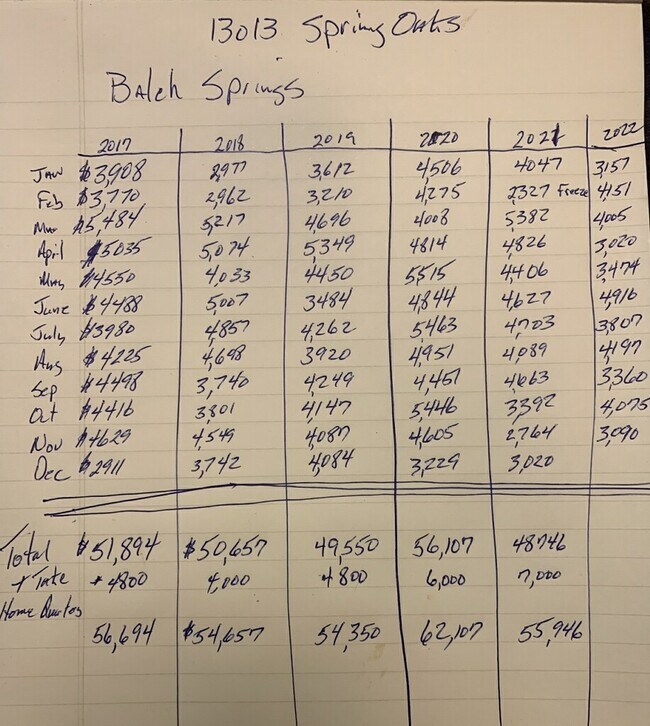 13013 Spring Oaks
Balch Springs
2017 2018 2019 2020 2021 2022
Jan $3,908 2977 3,612 4,506 4047 3,157
Feb $3,770 2,962 3,210 4,275 2327 Freeze 4,151
Mar $5,484 5,217 4,696 4008 5,382 4,005
April $5035 5,074 5,349 4814 4,826 3,020
May $4550 4,033 4450 5,515 4,406 3,474
June $4488 5,007 3484 4,844 4,627 4,916
July $3980 4,857 4,262 5,463 4,703 3,807
Aug $4225 4,698 3920 4,951 4,089 4,197
Sep $4498 3,740 4,249 4,451 4,663 3,360
Oct $4416 3,801 4,147 5,446 3,392 4,075
Nov $4629 4,549 4,087 4,605 2,764 3,090
Dec $2911 3,742 4,084 3,229 3,020
Total $51,894 $50,657 49,550 56,107 48746
+ Take +4800 4,000 4800 6,000 7,000
Home Quarters
56,694 $54,657 54,350 62,107 55,946